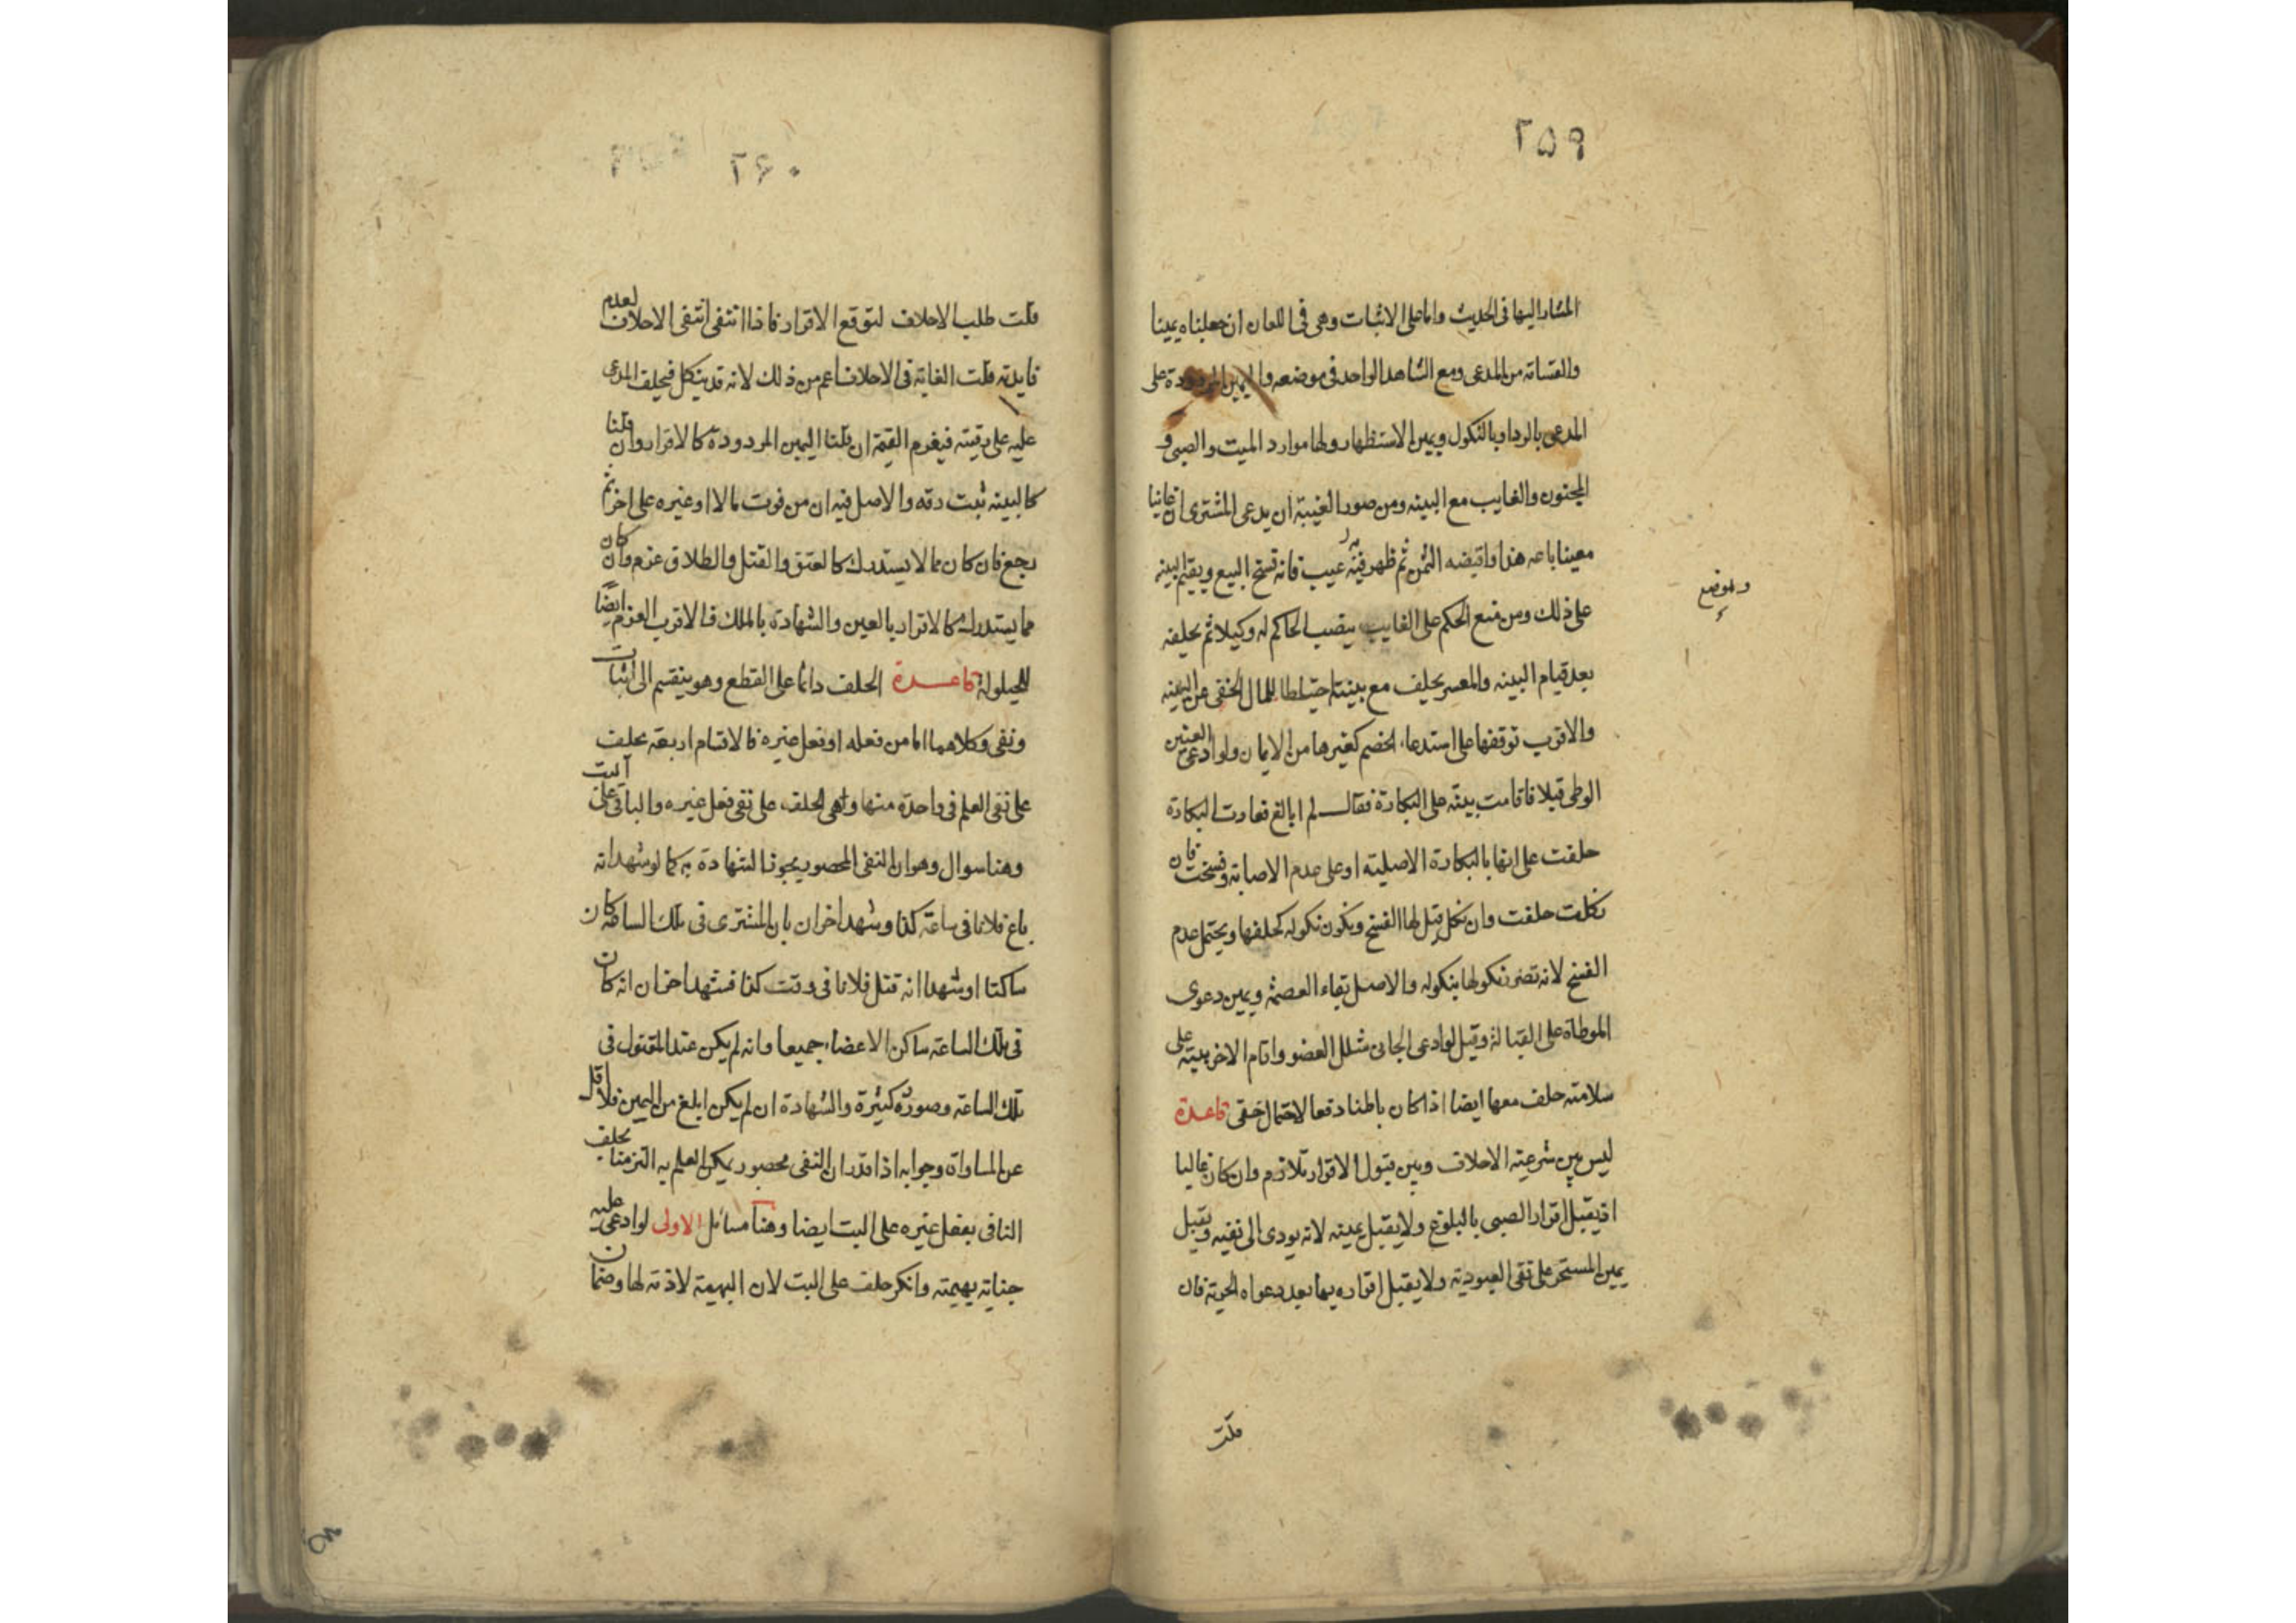 ٢٥٩
المشار اليها فى الحديث واما على الاثبات وهى فى اللعان ان جعلناه يمينا
والقسامة من المدعى ومع الشاهد الواحد فى موضعه واليمين المردودة على
المدعى بالرد او بالنكول ويمين الاستظهار ولها موارد الميت والصبى و
المجنون والغايب مع البينه ومن صور الغيبة ان يدعى المشترى ان غائبا
معينا باعه هذا واقبضه الثمن ثم ظهر فيه عيب فانه فسخ البيع ويقيم البينه
على ذلك ومن منع الحكم على الغايب ينصب الحاكم له وكيلا ثم يحلفه
بعد قيام البينه والمعسر يحلف مع بينته احتياطا للمال الخفى عن البينه
والاقرب توقفها على استدعاء الخصم كغيرها من الايمان ولو ادعى العنين
الوطى قبلا فاقامت بينة على البكارة فقال لم ابالغ فعادت البكارة
حلفت على انها بالبكارة الاصلية او على عدم الاصابة وفسخت فان
نكلت حلف وان نكل قيل لها الفسخ ويكون نكوله كحلفها ويحتمل عدم
الفسخ لانه تضرر نكولها بنكوله والاصل بقاء العصمة ويمين دعوى
المواطاة على القبالة وقيل لو ادعى الجانى شلل العضو واقام الاخر بينة على
سلامته حلف معها ايضا اذا كان باطنا دفعا لاحتمال خفى قاعدة
ليس بين شرعية الاحلاف وبين قبول الاقرار تلازم وان كان غالبا
اذ يقبل اقرار الصبى بالبلوغ ولا يقبل يمينه لانه يودى الى نفيه ويقبل
يمين المستحر على نفى العبودية ولا يقبل اقراره بها بعد دعواه الحرية فان
قلت
٢۶٠
قلت طلب الاحلاف لتوقع الاقرار فاذا انتفى انتفى الاحلاف لعدم
فايدته قلت الغاية فى الاحلاف اعم من ذلك لانه قد ينكل فيحلف المدعى
عليه على رقيته فيغرم القيمة ان قلنا اليمين المردودة كالاقرار وان قلنا
كالبينه ثبت رقه والاصل فيه ان من فوت مالا او غيره على اخر ثم
رجع فان كان مما لا يستدرك كالعتق والقتل والطلاق غرم وان كان
مما يستدرك كالاقرار بالعين والشهادة بالملك فالاقرب الغرم ايضا
للحيلولة قاعدة الحلف دائما على القطع وهو ينقسم الى اثبات
ونفى وكلاهما اما من فعله او فعل غيره فالاقسام اربعة يحلف
على نفى العلم فى واحدة منها وهى الحلف على نفى فعل غيره والباقى على البت
وهنا سوال وهو ان النفى المحصور يجوز الشهادة به كما لو شهدا انه
باع فلانا فى ساعة كذا وشهد اخران بان المشترى فى تلك الساعة كان
ساكتا او شهدا انه قتل فلانا فى وقت كذا فشهد اخران انه كان
فى تلك الساعة ساكن الاعضاء جميعا وانه لم يكن عند المقتول فى
تلك الساعة وصوره كثيرة والشهادة ان لم يكن ابلغ من اليمين فلا اقل
عن المساواة وجوابه اذا قدر ان النفى محصور يمكن العلم به التزمنا بحلف
النافى بفعل غيره على البت ايضا وهنا مسائل الاولى لو ادعى عليه
جناية بهيمته وانكر حلف على البت لان البهيمة لا ذمة لها وضمان